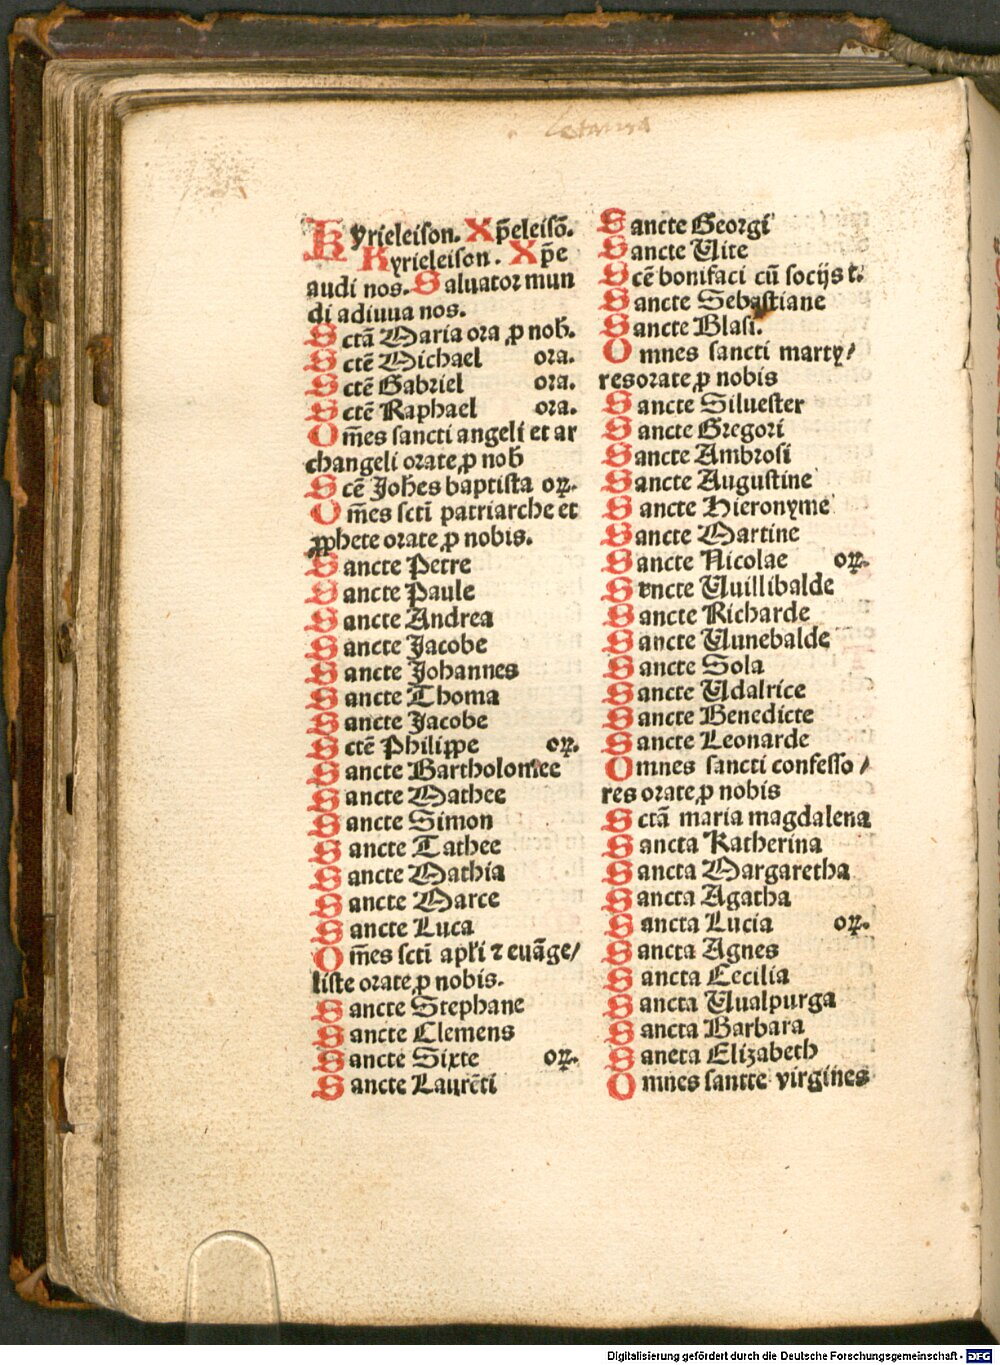 Letania
Kyrieleison. Xp̄eleisō.
Kyrieleison. Xp̄e
audi nos. Saluator mun
di adiuua nos.
Sctā Maria ora ꝓ nob̄.
Sctē Michael ora.
Sctē Gabriel ora.
Sctē Raphael ora.
Om̄es sancti angeli et ar
changeli orate ꝓ nob̄
Scē Joh̄es baptista oꝝ.
Om̄es sctī patriarche et
ꝓphete orate ꝓ nobis.
Sancte Petre
Sancte Paule
Sancte Andrea
Sancte Jacobe
Sancte Johannes
Sancte Thoma
Sancte Jacobe
Sctē Philippe oꝝ.
Sancte Bartholomee
Sancte Mathee
Sancte Simon
Sancte Tathee
Sancte Mathia
Sancte Marce
Sancte Luca
Om̄es sctī apl̄i ⁊ euāge/
liste orate ꝓ nobis.
Sancte Stephane
Sancte Clemens
Sancte Sixte oꝝ.
Sancte Laurēti
Sancte Georgi
Sancte Uite
Scē bonifaci cū socijs t.
Sancte Sebastiane
Sancte Blasi.
Omnes sancti marty/
res orate ꝓ nobis
Sancte Siluester
Sancte Gregori
Sancte Ambrosi
Sancte Augustine
Sancte Hieronyme
Sancte Martine
Sancte Nicolae oꝝ.
Sencte Uuillibalde
Sancte Richarde
Sancte Uunebalde
Sancte Sola
Sancte Udalrice
Sancte Benedicte
Sancte Leonarde
Omnes sancti confesso/
res orate ꝓ nobis
Sctā maria magdalena
Sancta Katherina
Sancta Margaretha
Sancta Agatha
Sancta Lucia oꝝ.
Sancta Agnes
Sancta Cecilia
Sancta Uualpurga
Sancta Barbara
Sancta Elizabeth
Omnes sancte virgines
Digitalisierung gefördert durch die Deutsche Forschungsgemeinschaft - DFG